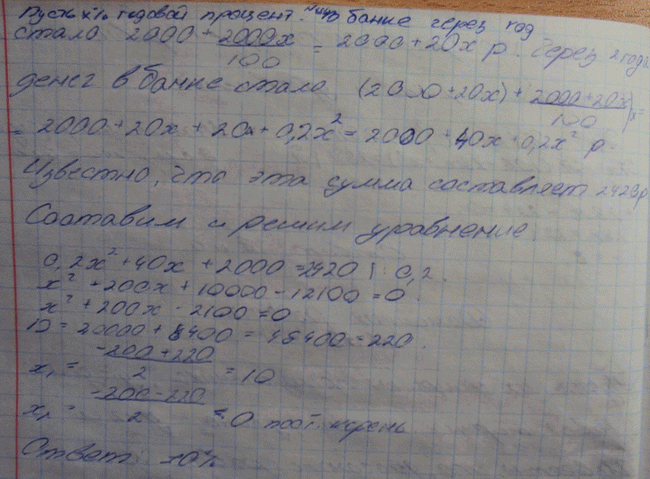 Пусть x% годовой процент. банке через год
стало 2000 + 2000x/100 = 2000 + 20x р. Через 2 года
денег в банке стало (2000+20x) + 2000+20x/100 x=
= 2000 + 20x + 20x + 0,2x² = 2000 + 40x + 0,2x² р.
Известно, что эта сумма составляет 2420р
Составим и решим уравнение
0,2x² + 40x + 2000 = 2420 | : 0,2.
x² + 200x + 10000 - 12100 = 0.
x² + 200x - 2100 = 0
D = 20000 + 8400 = 48400 = 220.
x₁ = -200+220/2 = 10
x₂ = -200-220/2 < 0 пост. корень
Ответ: 10%